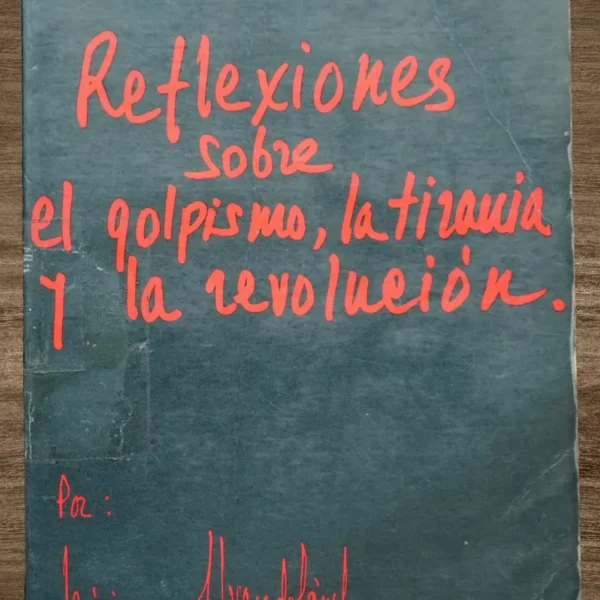 Reflexiones
sobre
el golpismo, la tirania
y la revolución.
Por: